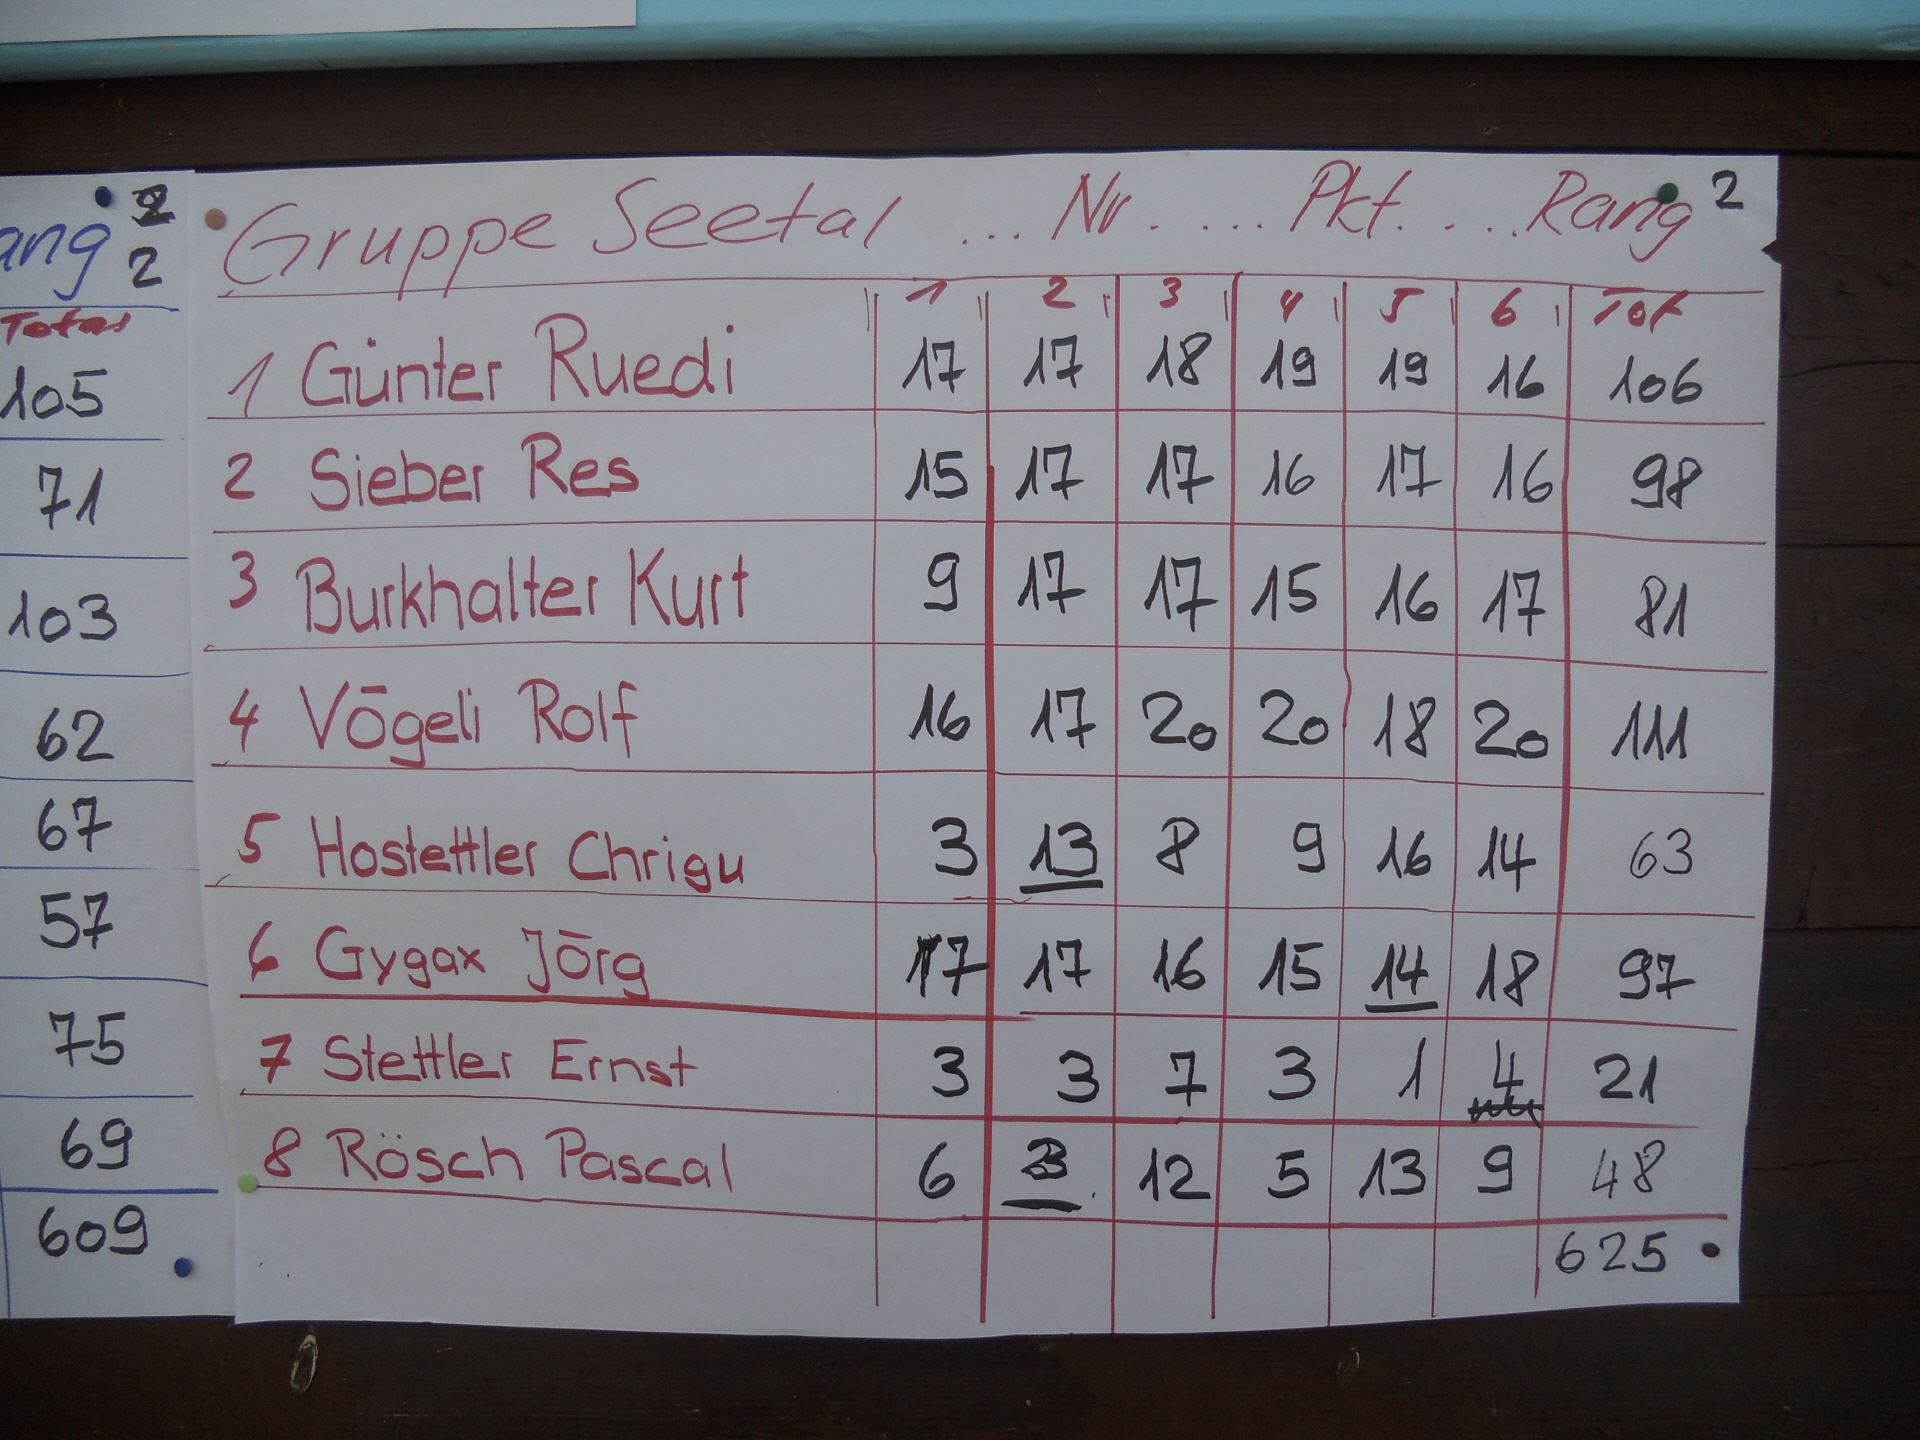 ang 2
2
Total
105
71
103
62
67
57
75
69
609
Gruppe Seetal ... Nr. .... Pkt. ....Rang 2
1 2 3 4 5 6 Tot
1 Günter Ruedi 17 17 18 19 19 16 106
2 Sieber Res 15 17 17 16 17 16 98
3 Burkhalter Kurt 9 17 17 15 16 17 81
4 Vögeli Rolf 16 17 20 20 18 20 111
5 Hostettler Chrigu 3 13 8 9 16 14 63
6 Gygax Jörg 17 17 16 15 14 18 97
7 Stettler Ernst 3 3 7 3 1 4 21
8 Rösch Pascal 6 3 12 5 13 9 48
625